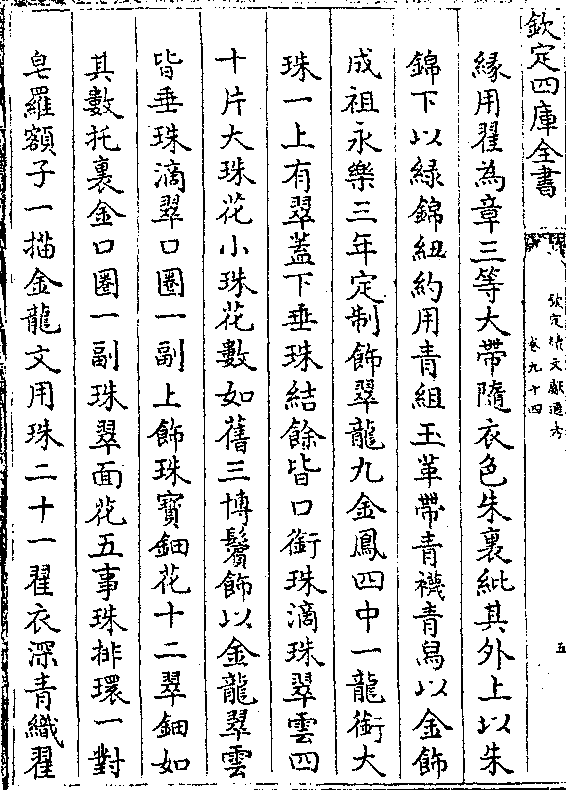 欽定四庫全書
欽定續文獻通考
卷九十四
五
緣用翟為章三等大帶隨衣色朱裏紕其外上以朱
錦下以緑錦紐約用青組玉革帶青襪青舄以金飾
成祖永樂三年定制飾翠龍九金鳳四中一龍銜大
珠一上有翠蓋下垂珠結餘皆口銜珠滴珠翠雲四
十片大珠花小珠花數如舊三博鬢飾以金龍翠雲
皆垂珠滴翠口圈一副上飾珠寳鈿花十二翠鈿如
其數托裏金口圈一副珠翠面花五事珠排環一對
皂羅額子一描金龍文用珠二十一翟衣深青織翟